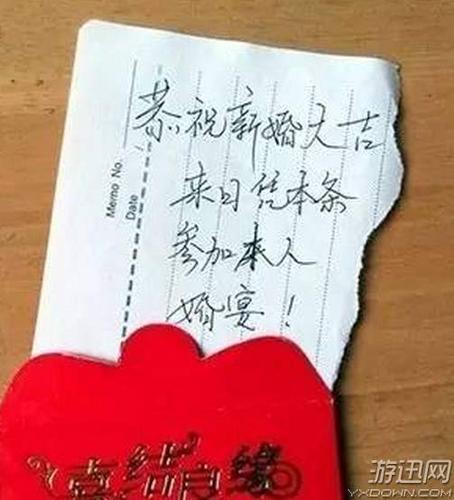 Memo No.
Date
恭祝新婚大吉
来日凭本条
参加本人
婚宴！
喜结良缘
游迅网
YXDOWN.COM